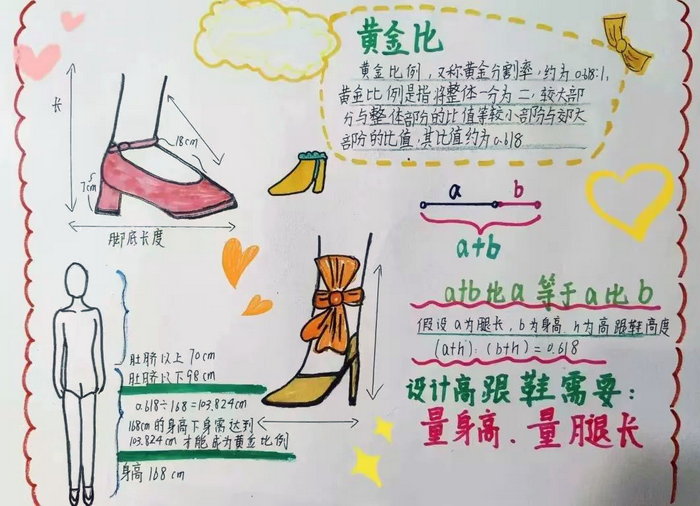 黄金比
黄金比例，又称黄金分割率，约为0.618:1，
黄金比例是指将整体一分为二，较大部
分与整体部分的比值等较小部份与较大
部分的比值，其比值约为0.618
长
18cm
7cm
脚底长度
a b
a+b
a+b比a等于a比b
假设a为腿长，b为身高，h为高跟鞋高度
(a+h):(b+h)=0.618
设计高跟鞋需要：
量身高、量腿长
肚脐以上70cm
肚脐以下98cm
0.618÷168=103.824cm
168cm的身高下身需达到
103.824cm才能成为黄金比例
身高168cm